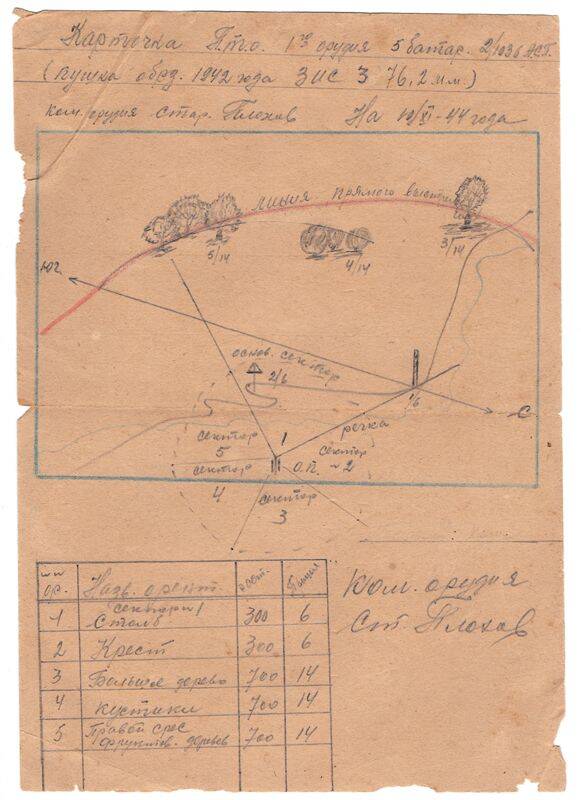 Карточка П.т.о. 1го орудия 5 батар. 2/1036 А.С.П.
(пушка обрд. 1942 года ЗИС 3 76,2 мм.)
ком. орудия стар. Плохов На 10/XI-44 года
линия прямого выстрела
5/14
4/14
3/14
юг
основ. сектор
2/6
1/6
С
речка
сектор
5
1
сектор
2
сектор
4
О.П.
сектор
3
ор.
Назв. ориент.
1
Столб
300
6
2
Крест
300
6
3
Большое дерево
700
14
4
кустики
700
14
5
Правой срес
фруктов. деревов
700
14
Ком. орудия
Ст. Плохов